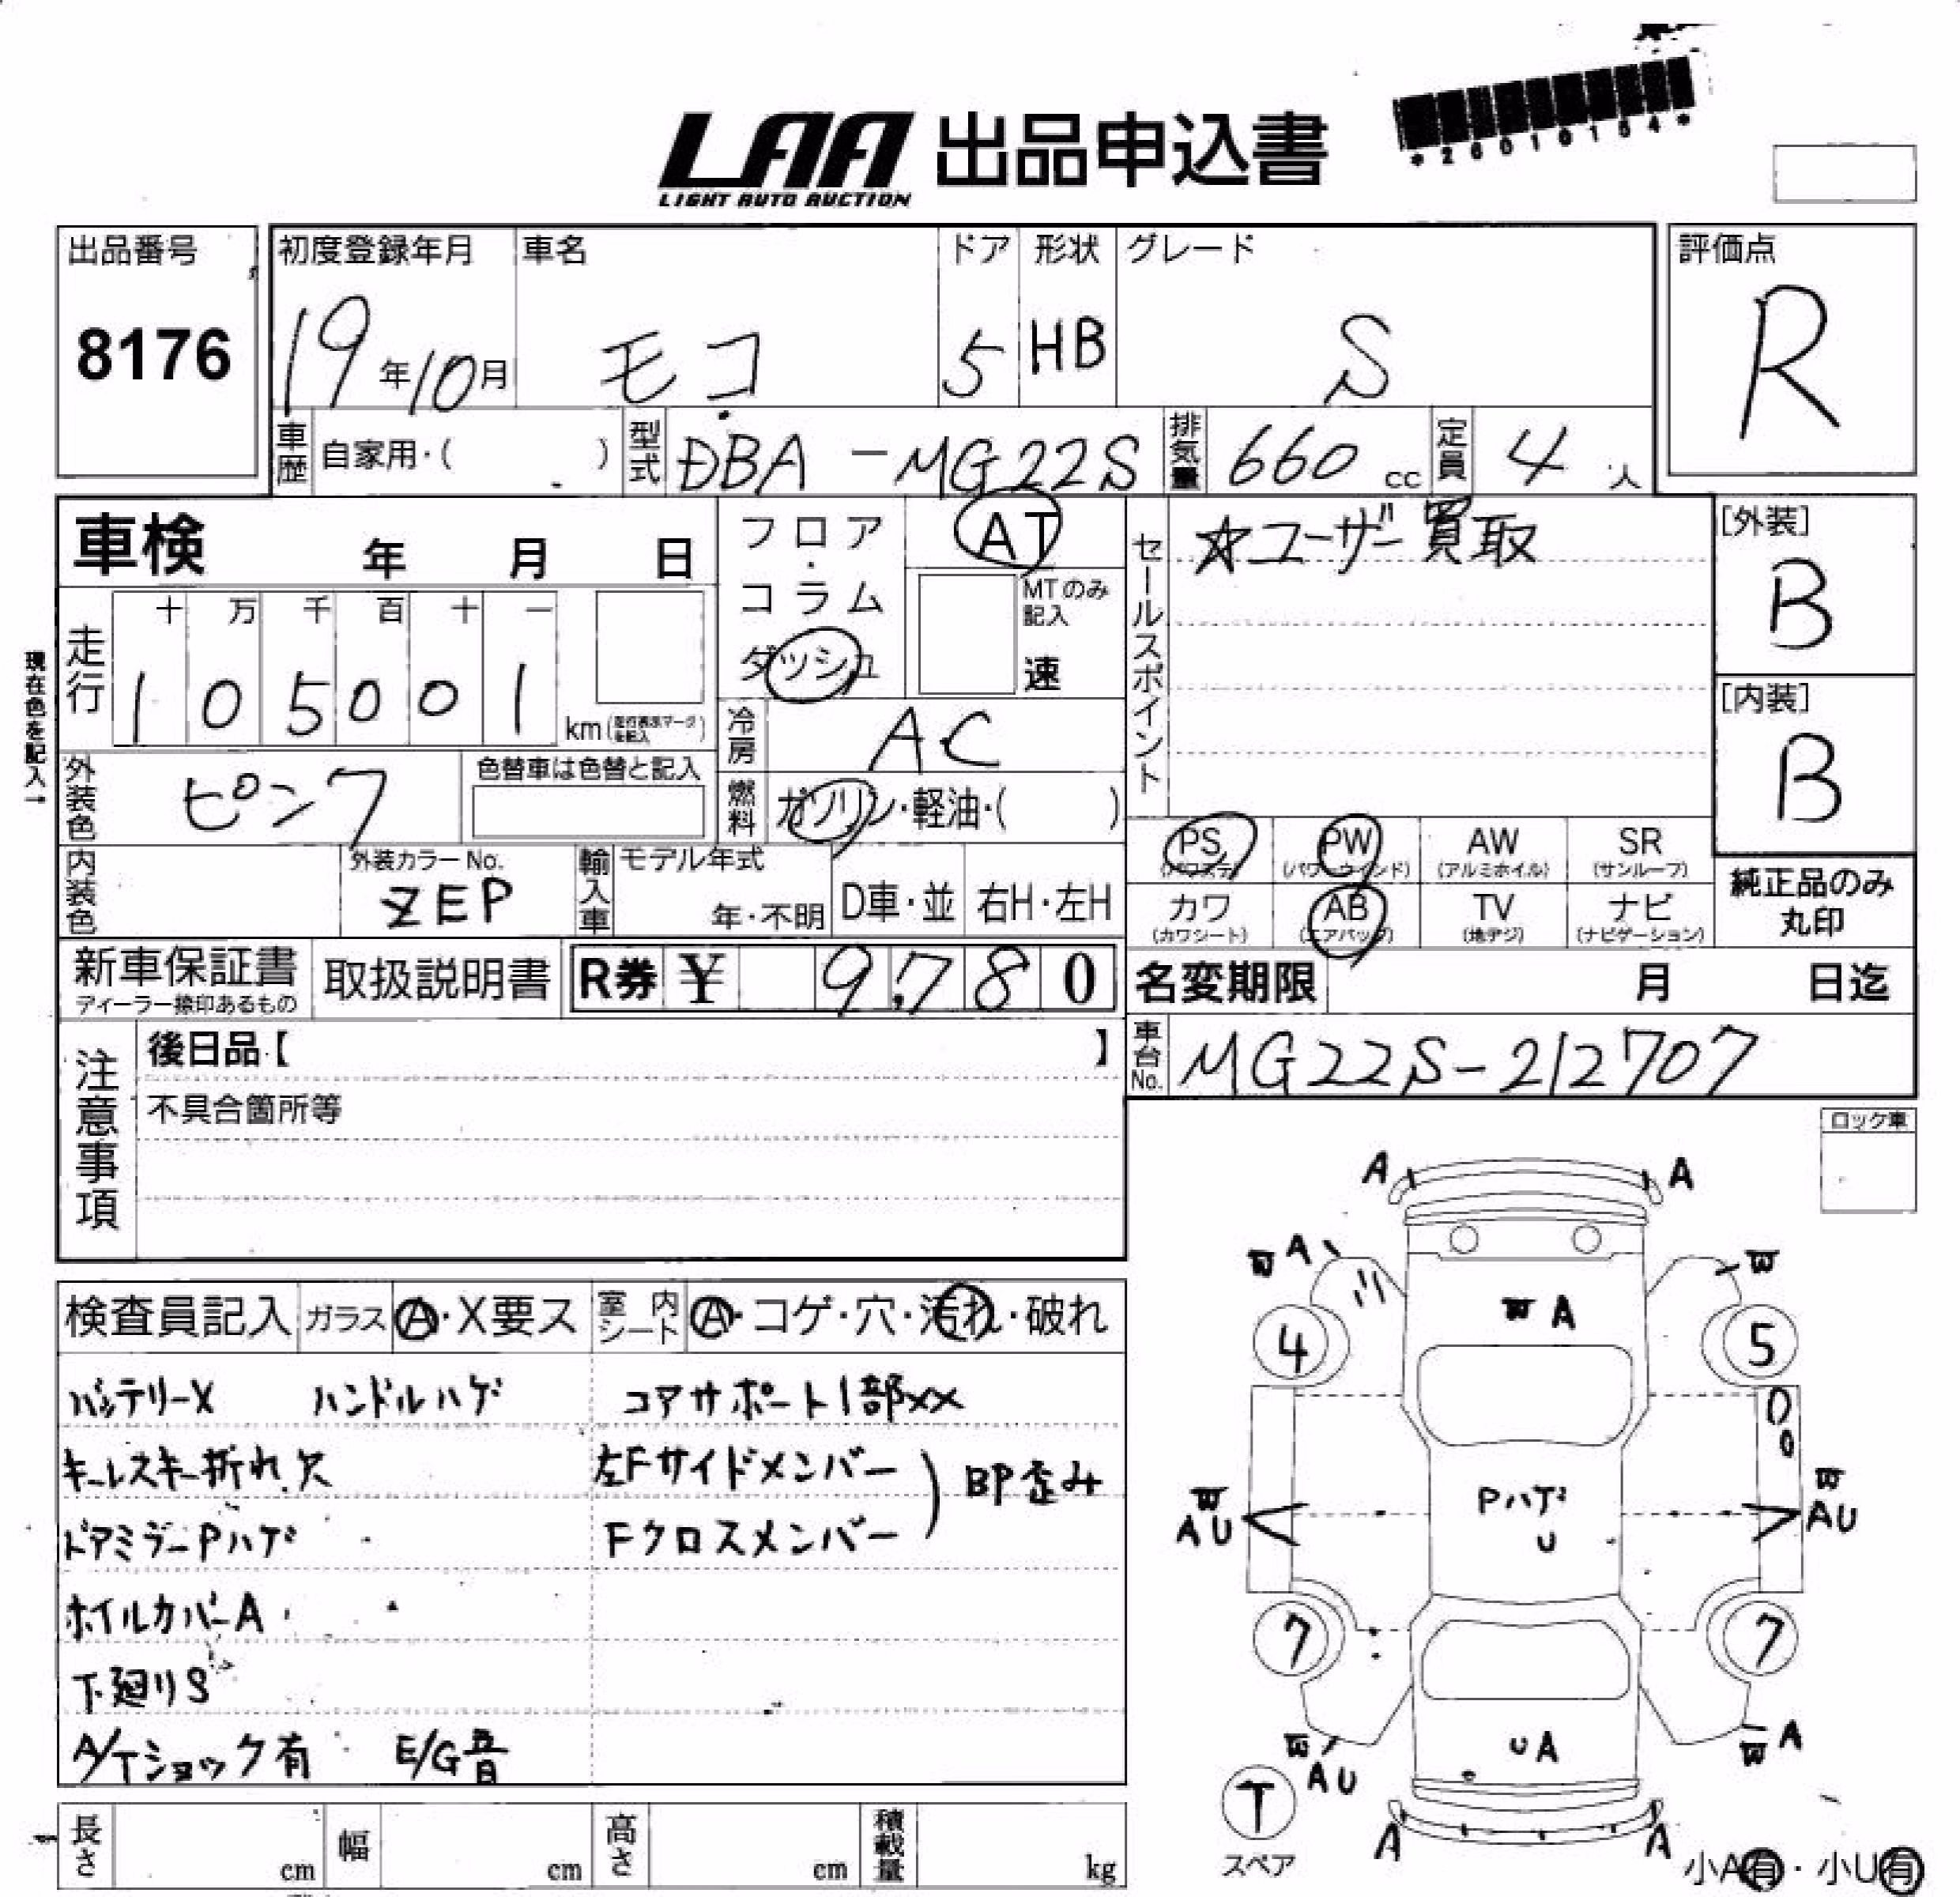 *26010154*
LAA 出品申込書
LIGHT AUTO AUCTION
出品番号
8176
初度登録年月
19年10月
車名
モコ
ドア
5
形状
HB
グレード
S
評価点
R
車歴 自家用・( )
型式 DBA-MG22S
排気量 660 cc
定員 4 人
車検 年 月 日
フロア・コラム
ダッシュ
AT
MTのみ記入
速
セールスポイント
☆ユーザー買取
[外装]
B
[内装]
B
現在色を記入→
走行
十 万 千 百 十 一
1 0 5 0 0 1
km(走行表示マークを記入)
冷房 AC
外装色 ピンク
色替車は色替と記入
燃料 ガソリン・軽油・( )
内装色
外装カラーNo.
ZEP
輸入車
モデル年式
年・不明
D車・並
右H・左H
PS (パワステ)
PW (パワーウインド)
AW (アルミホイル)
SR (サンルーフ)
カワ (カワシート)
AB (エアバッグ)
TV (地デジ)
ナビ (ナビゲーション)
純正品のみ
丸印
新車保証書
ディーラー捺印あるもの
取扱説明書
R券 ¥ 9,780
名変期限 月 日迄
車台No. MG22S-212707
注意事項
後日品【 】
不具合箇所等
ロック車
検査員記入
ガラス A・X要ス
室内シート A・コゲ・穴・汚れ・破れ
バッテリーX ハンドルハゲ
キーレスキー折れ、欠
ドアミラーPハゲ
ホイルカバーA
下廻りS
A/Tショック有 E/G音
コアサポート1部XX
左Fサイドメンバー
Fクロスメンバー
BP歪み
A A
W A W
W A
4 5
W
A U
Pハゲ
U
W
A U
7 7
U A
W
A U
W A
A A
T
スペア
小A有・小U有
長さ cm
幅 cm
高さ cm
積載量 kg